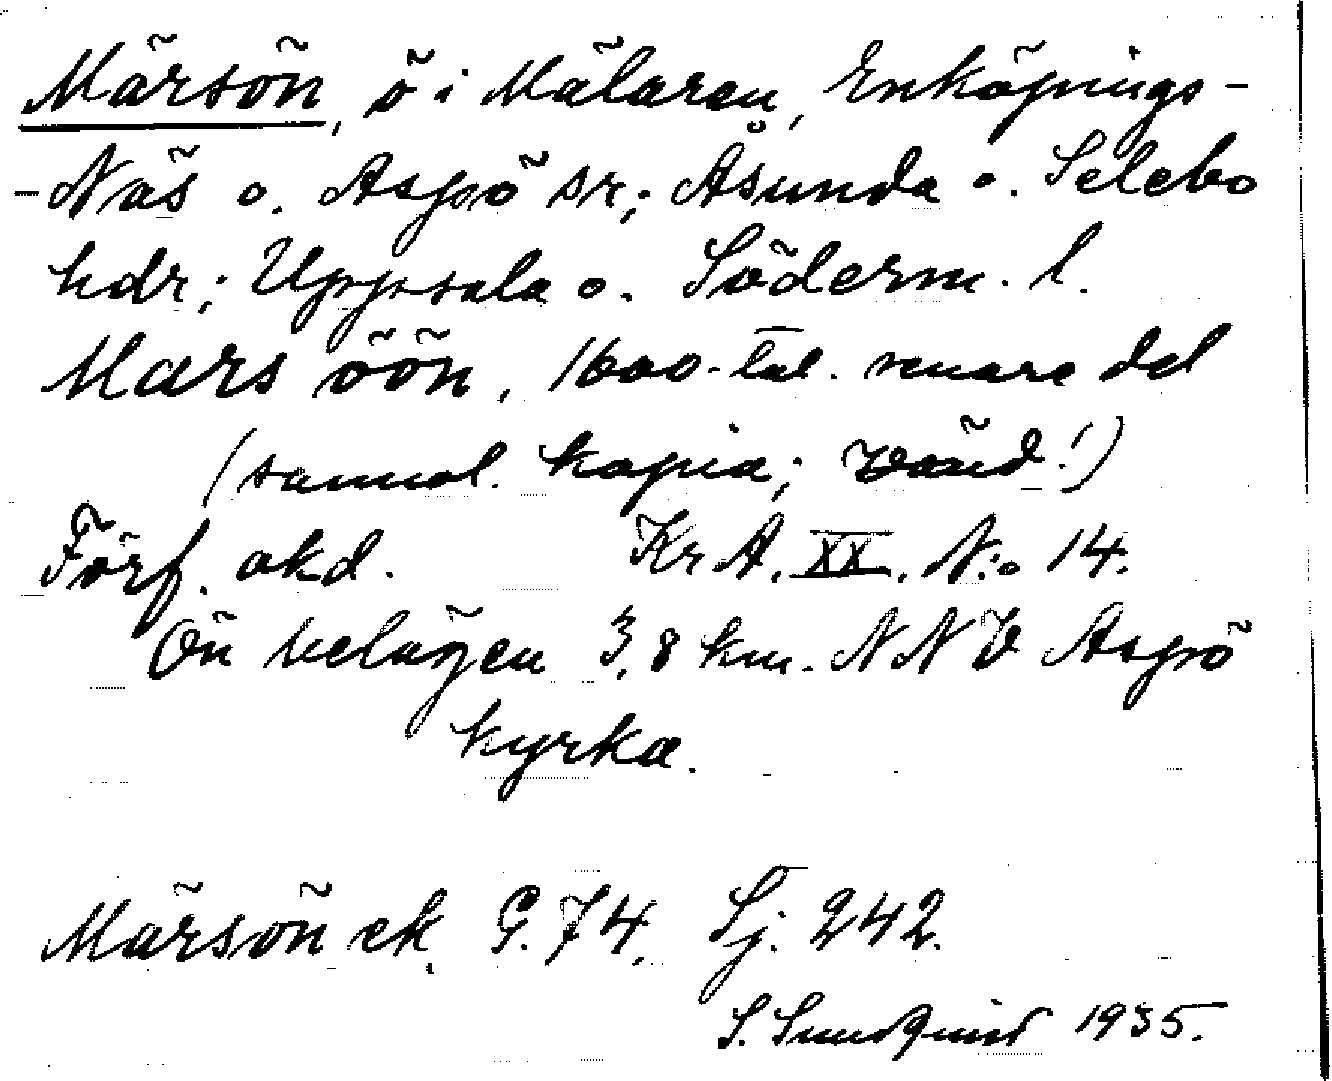 Märsön, ö i Mälaren, Enköpings-
-Näs o. Aspö sr; Åsunda o. Selebo
hdr; Uppsala o. Söderm. l.
Mars öön, 1600-tal. senare del
(samml. kopia; vänd!)
Förf. okd. Kr A. XX. N:o 14.
Ön belägen 3,8 km. NNV Aspö
kyrka.
Märsön ek. G. 74, Sj. 242.
S. Sundquist 1935.